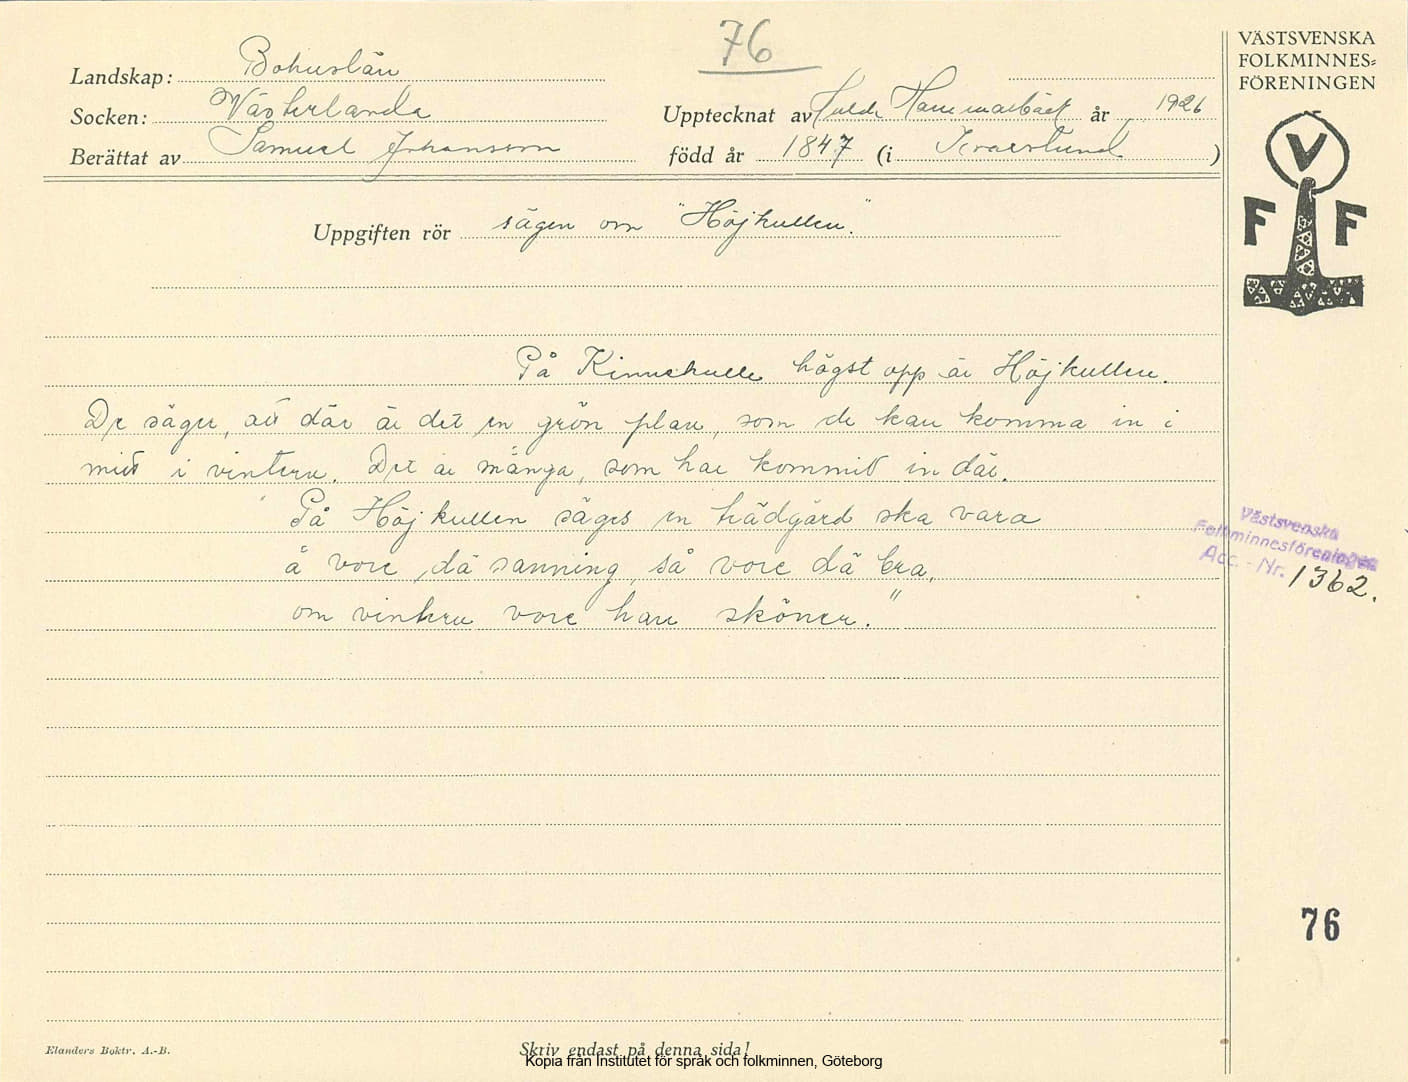 76
VÄSTSVENSKA
FOLKMINNES=
FÖRENINGEN
Landskap: Bohuslän
Socken: Västerlanda
Upptecknat av Hulda Hammarbäck år 1926
Berättat av Samuel Johansson
född år 1847 (i )
V
F F
Uppgiften rör sägen om "Höjkullen."
På Kinnekulle högst opp är Höjkullen.
De säger, att där är det en grön plan, som de kan komma in i
mitt i vintern. Det är många, som har kommit in där.
"På Höjkullen säges en trädgård ska vara
å vore dä sanning, så vore dä bra,
om vintern vore han sköner."
Västsvenska
Folkminnesföreningen
Acc. - Nr. 1362.
76
Elanders Boktr. A.-B.
Skriv endast på denna sida!
Kopia från Institutet för språk och folkminnen, Göteborg